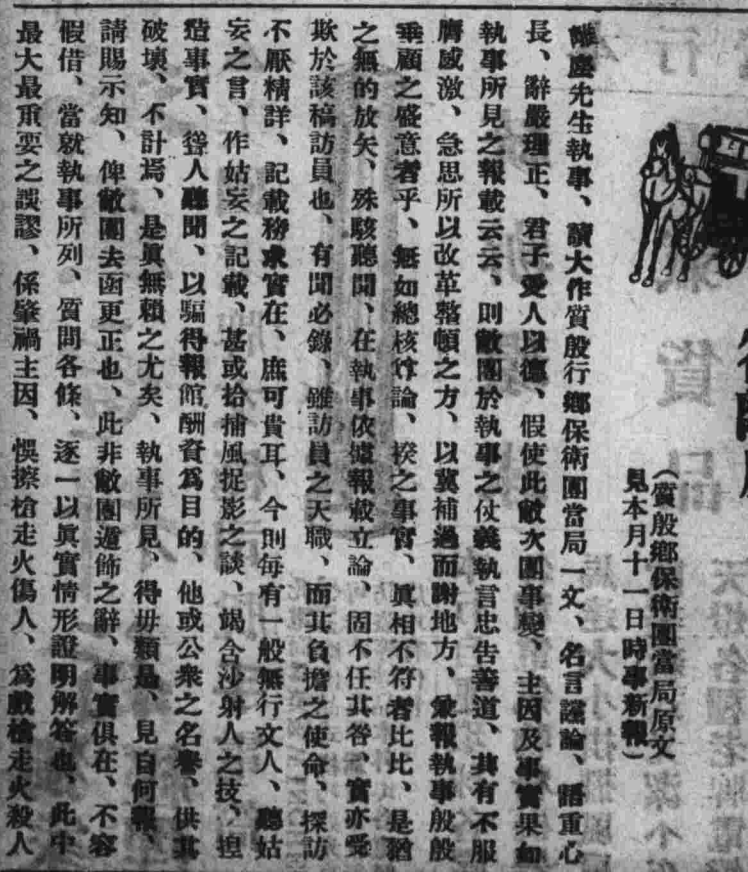 （質殷鄉保衛團當局原文
見本月十一日時事新報）
慶先生執事、讀大作質殷行鄉保衛團當局一文、名言讜論、語重心
長、辭嚴理正、君子愛人以德、假使此敝次團事變、主因及事實果如
執事所見之報載云云、則敝團於執事之仗義執言忠告善道、其有不服
膺感激、急思所以改革整頓之方、以冀補過而謝地方、兼報執事殷殷
垂顧之盛意者乎、無如總核尊論、揆之事實、眞相不符者比比、是猶
之無的放矢、殊駭聽聞、在執事依據報載立論、固不任其咎、實亦受
欺於該稿訪員也、有聞必錄、雖訪員之天職、而其負擔之使命、探訪
不厭精詳、記載務求實在、庶可貴耳、今則每有一般無行文人、聽姑
妄之言、作姑妄之記載、甚或拾捕風捉影之談、竭含沙射人之技、捏
造事實、聳人聽聞、以騙得報館酬資爲目的、他或公衆之名譽、供其
破壞、不計焉、是眞無賴之尤矣、執事所見、得毋類是、見自何報、
請賜示知、俾敝團去函更正也、此非敝團遁飾之辭、事實俱在、不容
假借、當就執事所列、質問各條、逐一以眞實情形證明解答也、此中
最大最重要之誤謬、係肇禍主因、悞擦槍走火傷人、爲戲槍走火殺人